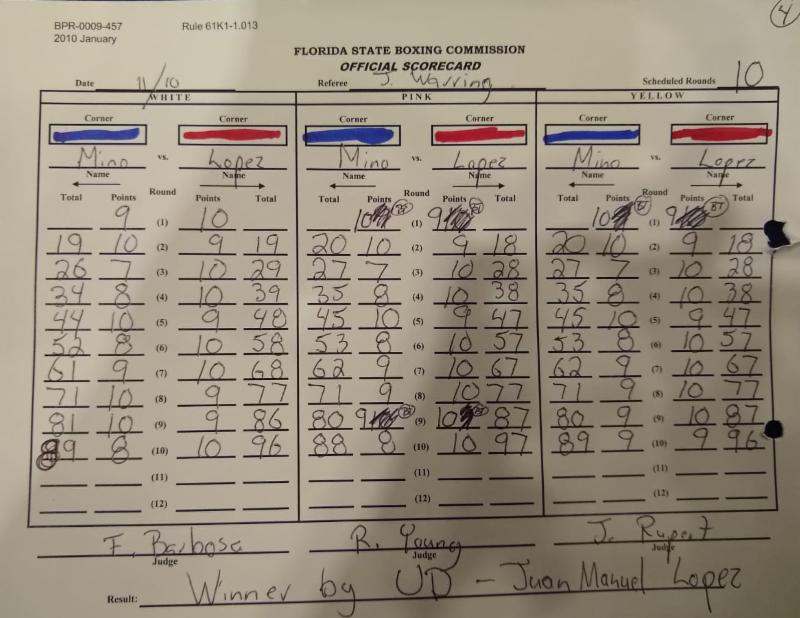 4
BPR-0009-457 Rule 61K1-1.013
2010 January
FLORIDA STATE BOXING COMMISSION
OFFICIAL SCORECARD
Date 11/10 Referee J. Warring Scheduled Rounds 10
WHITE PINK YELLOW
Corner Corner Corner Corner Corner Corner
Mino vs. Lopez Mino vs. Lopez Mino vs. Lopez
Name Name Name Name Name Name
Total Points Round Points Total Total Points Round Points Total Total Points Round Points Total
9 (1) 10 10 (1) 9 10 (1) 9
19 10 (2) 9 19 20 10 (2) 9 18 20 10 (2) 9 18
26 7 (3) 10 29 27 7 (3) 10 28 27 7 (3) 10 28
34 8 (4) 10 39 35 8 (4) 10 38 35 8 (4) 10 38
44 10 (5) 9 48 45 10 (5) 9 47 45 10 (5) 9 47
52 8 (6) 10 58 53 8 (6) 10 57 53 8 (6) 10 57
61 9 (7) 10 68 62 9 (7) 10 67 62 9 (7) 10 67
71 10 (8) 9 77 71 9 (8) 10 77 71 9 (8) 10 77
81 10 (9) 9 86 80 9 (9) 10 87 80 9 (9) 10 87
89 8 (10) 10 96 88 8 (10) 10 97 89 9 (10) 9 96
(11) (11) (11)
(12) (12) (12)
F. Barbosa R. Young J. Rupert
Judge Judge Judge
Result: Winner by UD - Juan Manuel Lopez